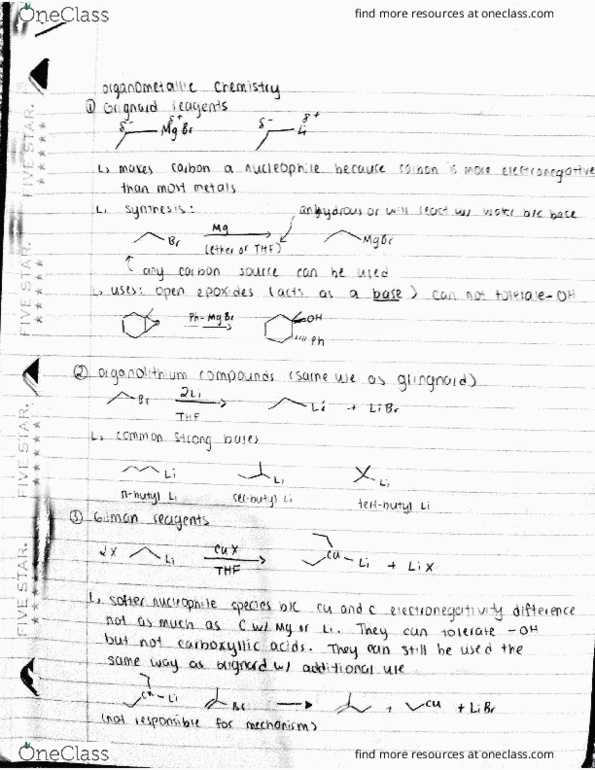 OneClass
find more resources at oneclass.com
organometallic Chemistry
① Grignard reagents
δ- δ+ MgBr δ- δ+ Li
↳ makes carbon a nucleophile because carbon is more electronegative
than most metals
↳ synthesis: anhydrous or will react w/ water b/c base
Br Mg (ether or THF) MgBr
↑ any carbon source can be used
↳ uses: open epoxides (acts as a base) can not tolerate -OH
O Ph-MgBr OH
Ph
② organolithium compounds (same use as gringnard)
Br 2Li THF Li + LiBr
↳ common strong bases
Li Li Li
n-butyl Li sec-butyl Li tert-butyl Li
③ Gilman reagents
2x Li CuX THF Cu-Li + LiX
↳ softer nucleophile species b/c cu and c electronegativity difference
not as much as C w/ Mg or Li. They can tolerate -OH
but not carboxyllic acids. They can still be used the
same way as Grignard w/ additional use
Cu-Li Br → + Cu + LiBr
(not responsible for mechanism)
FIVE STAR.
FIVE STAR.
FIVE STAR.
FIVE STAR.
OneClass
find more resources at oneclass.com